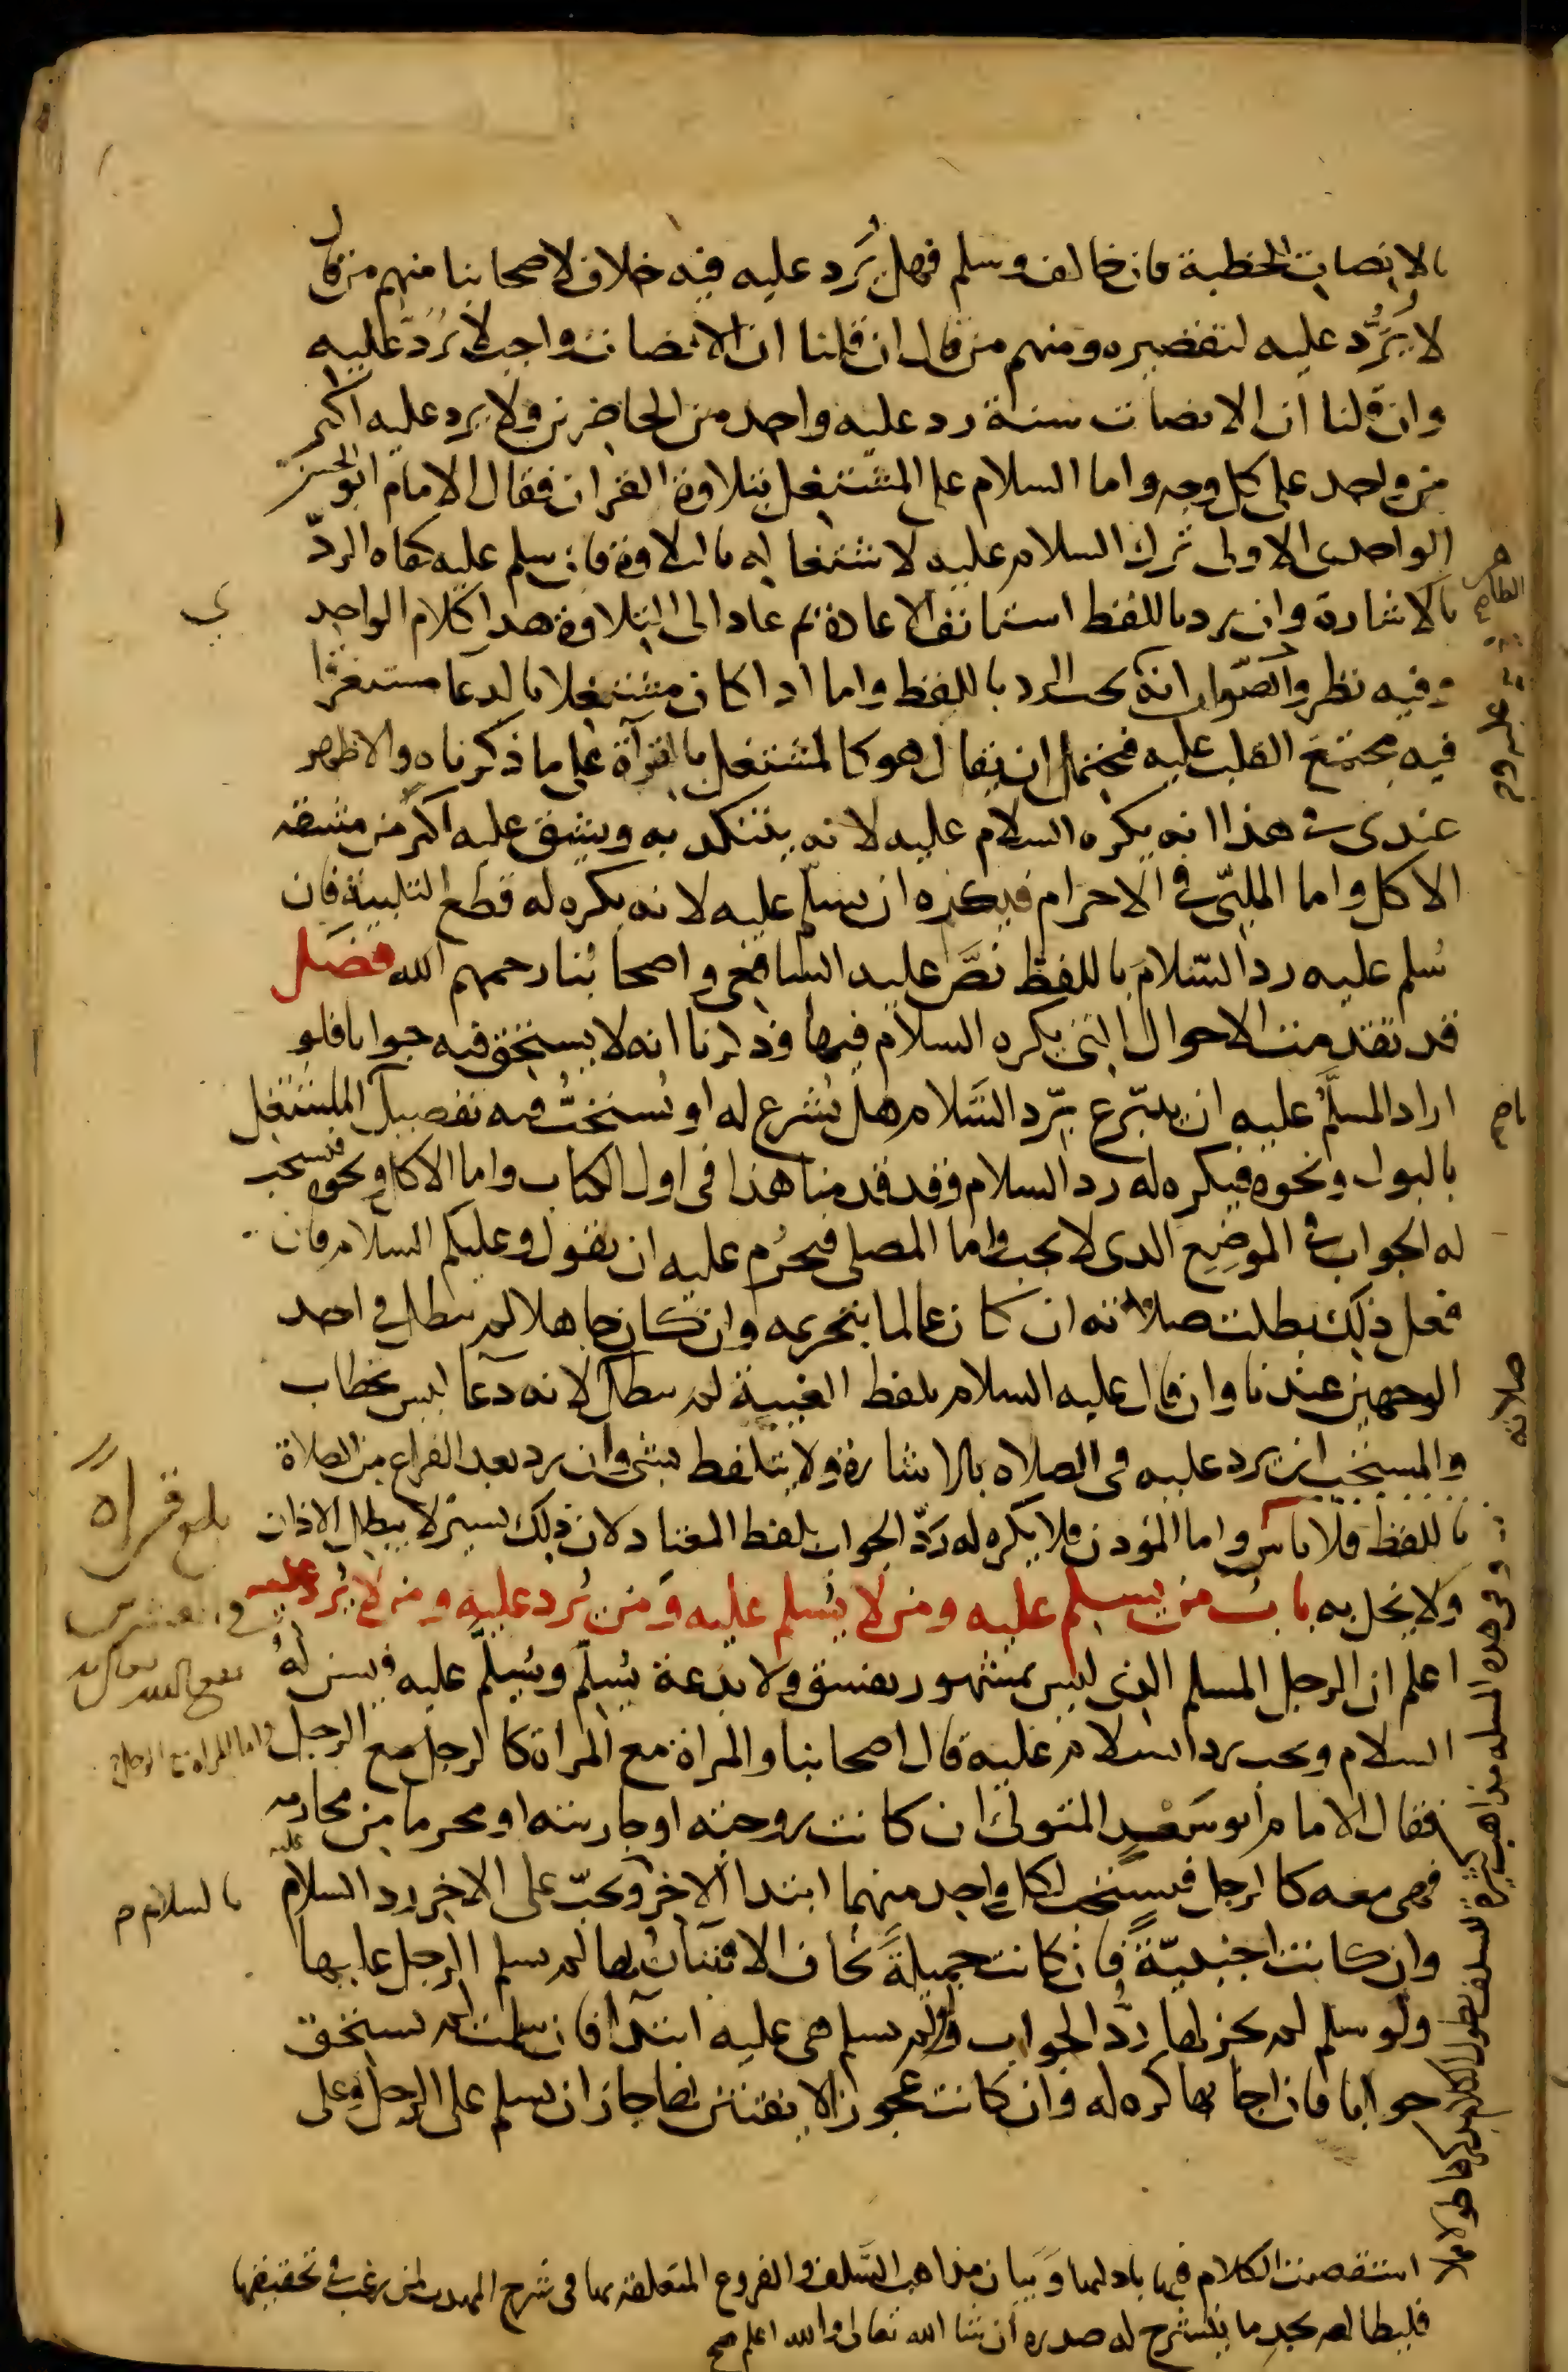 بالانصات للخطبة فان خالف وسلم فهل يُرَد عليه فيه خلاف لاصحابنا منهم من قال
لا يُرَدُّ عليه لتقصيره ومنهم من قال ان قلنا ان الانصات واجب لا يُرَدّ عليه
وان قلنا ان الانصات سنة رد عليه واحد من الحاضرين ولا يرد عليه اكثر
من واحد على كل وجه واما السلام على المشتغل بتلاوة القران فقال الامام ابو الحسن
الواحدى الاولى ترك السلام عليه لاشتغاله بالتلاوة فان سلم عليه كفاه الردّ
بالاشارة وان رد باللفظ استانف الاعادة ثم عاد الى التلاوة هذا كلام الواحد
وفيه نظر والصّواب انه يجب الرد باللفظ واما اذا كان مشتغلا بالدعا مستغرقا
فيه مجتمع القلب عليه فيحتمل ان يقال هو كالمشتغل بالقرآة على ما ذكرناه والاظهر
عندى في هذا انه يكره السلام عليه لانه يتنكد به ويشق عليه اكثر من مشقة
الاكل واما الملبّى في الاحرام فيكره ان يسلّم عليه لانه يكره له قطع التلبية فان
سُلم عليه رد السّلامَ باللفظ نصَّ عليه الشافعى واصحابُنا رحمهم الله فصل
قد تقدمت الاحوال التى يكره السلام فيها وذكرنا انه لا يستحق فيه جوابا فلو
اراد المسلَّم عليه ان يتبرّع بِرَد السَّلام هل يُشرع له او يُستحَبُّ فيه تفصيل المشتغل
بالبول ونحوه فيكره له رد السلام وقد قدمنا هذا في اول الكتاب واما الاكل ونحوه فيستحب
له الجواب في الموضع الذى لا يجب واما المصلى فيحرُم عليه ان يقول وعليكم السلام فان
فعل ذلك بطلت صلاته ان كان عالما بتحريمه وان كان جاهلا لم تبطل في احد
الوجهين عندنا وان قال عليه السلام بلفظ الغيبة لم تبطل لانه دعآ ليس بخطاب
والمستحب ان يرد عليه في الصلاه بالاشارة ولا يتلفظ بشى وان رد بعد الفراغ من الصلاة
باللفظ فلا باس واما المؤذن فلا يكره له رَدّ الجواب بلفظ المعتاد لان ذلك يسيرٌ لا يبطل الاذان
ولا يخل به بابُ من يسلم عليه ومن لا يُسلم عليه وَمَن يُرد عليه ومن لا يُرد عليه
اعلم ان الرجل المسلم الذى ليس بمشهور بفسق ولا بدعة يُسَلّم ويُسَلّم عليه فيسن لهُ
السلام ويجب رد السلام عليه قال اصحابنا والمراة مع المراة كالرجل مع الرجل
فقال الامام ابو سَعْدٍ المتولى ان كانت زوجته او جاريته او محرما من محارمه
فهى معه كالرجل فيستحب لكل واحد منهما ابتدا الاخر ويجبُ على الاخر رد السلام
عليه
وان كانت اجنبيّةً فَإن كانت جميلةً يُخاف الافتتان بها لم يسلم الرجل عليها
ولو سلم لم يجز لها رَدُّ الجواب ولم تسلم هى عليه ابتدآ فان سلمت لم تستحق
جوابا فان اجابها كره له وان كانت عجوزا لا يفتتن بها جاز ان تسلم على الرجل وعلى
الظاهر
صلاته
بلغ قراه
واما المراه مع الرجل
بالسلام صح
وفى هذه المسله مذاهب كثيرة للسلف يطول الكلام بذكرها
استقصيت الكلام فيها بادلتها وَبيان مذاهب السَّلف والفروع المتعلقه بها في شرح المهذب لمن رغب في تحقيقها
فليطالعه يجدِ ما ينشرح له صدره ان شا الله تعالى والله اعلم صح